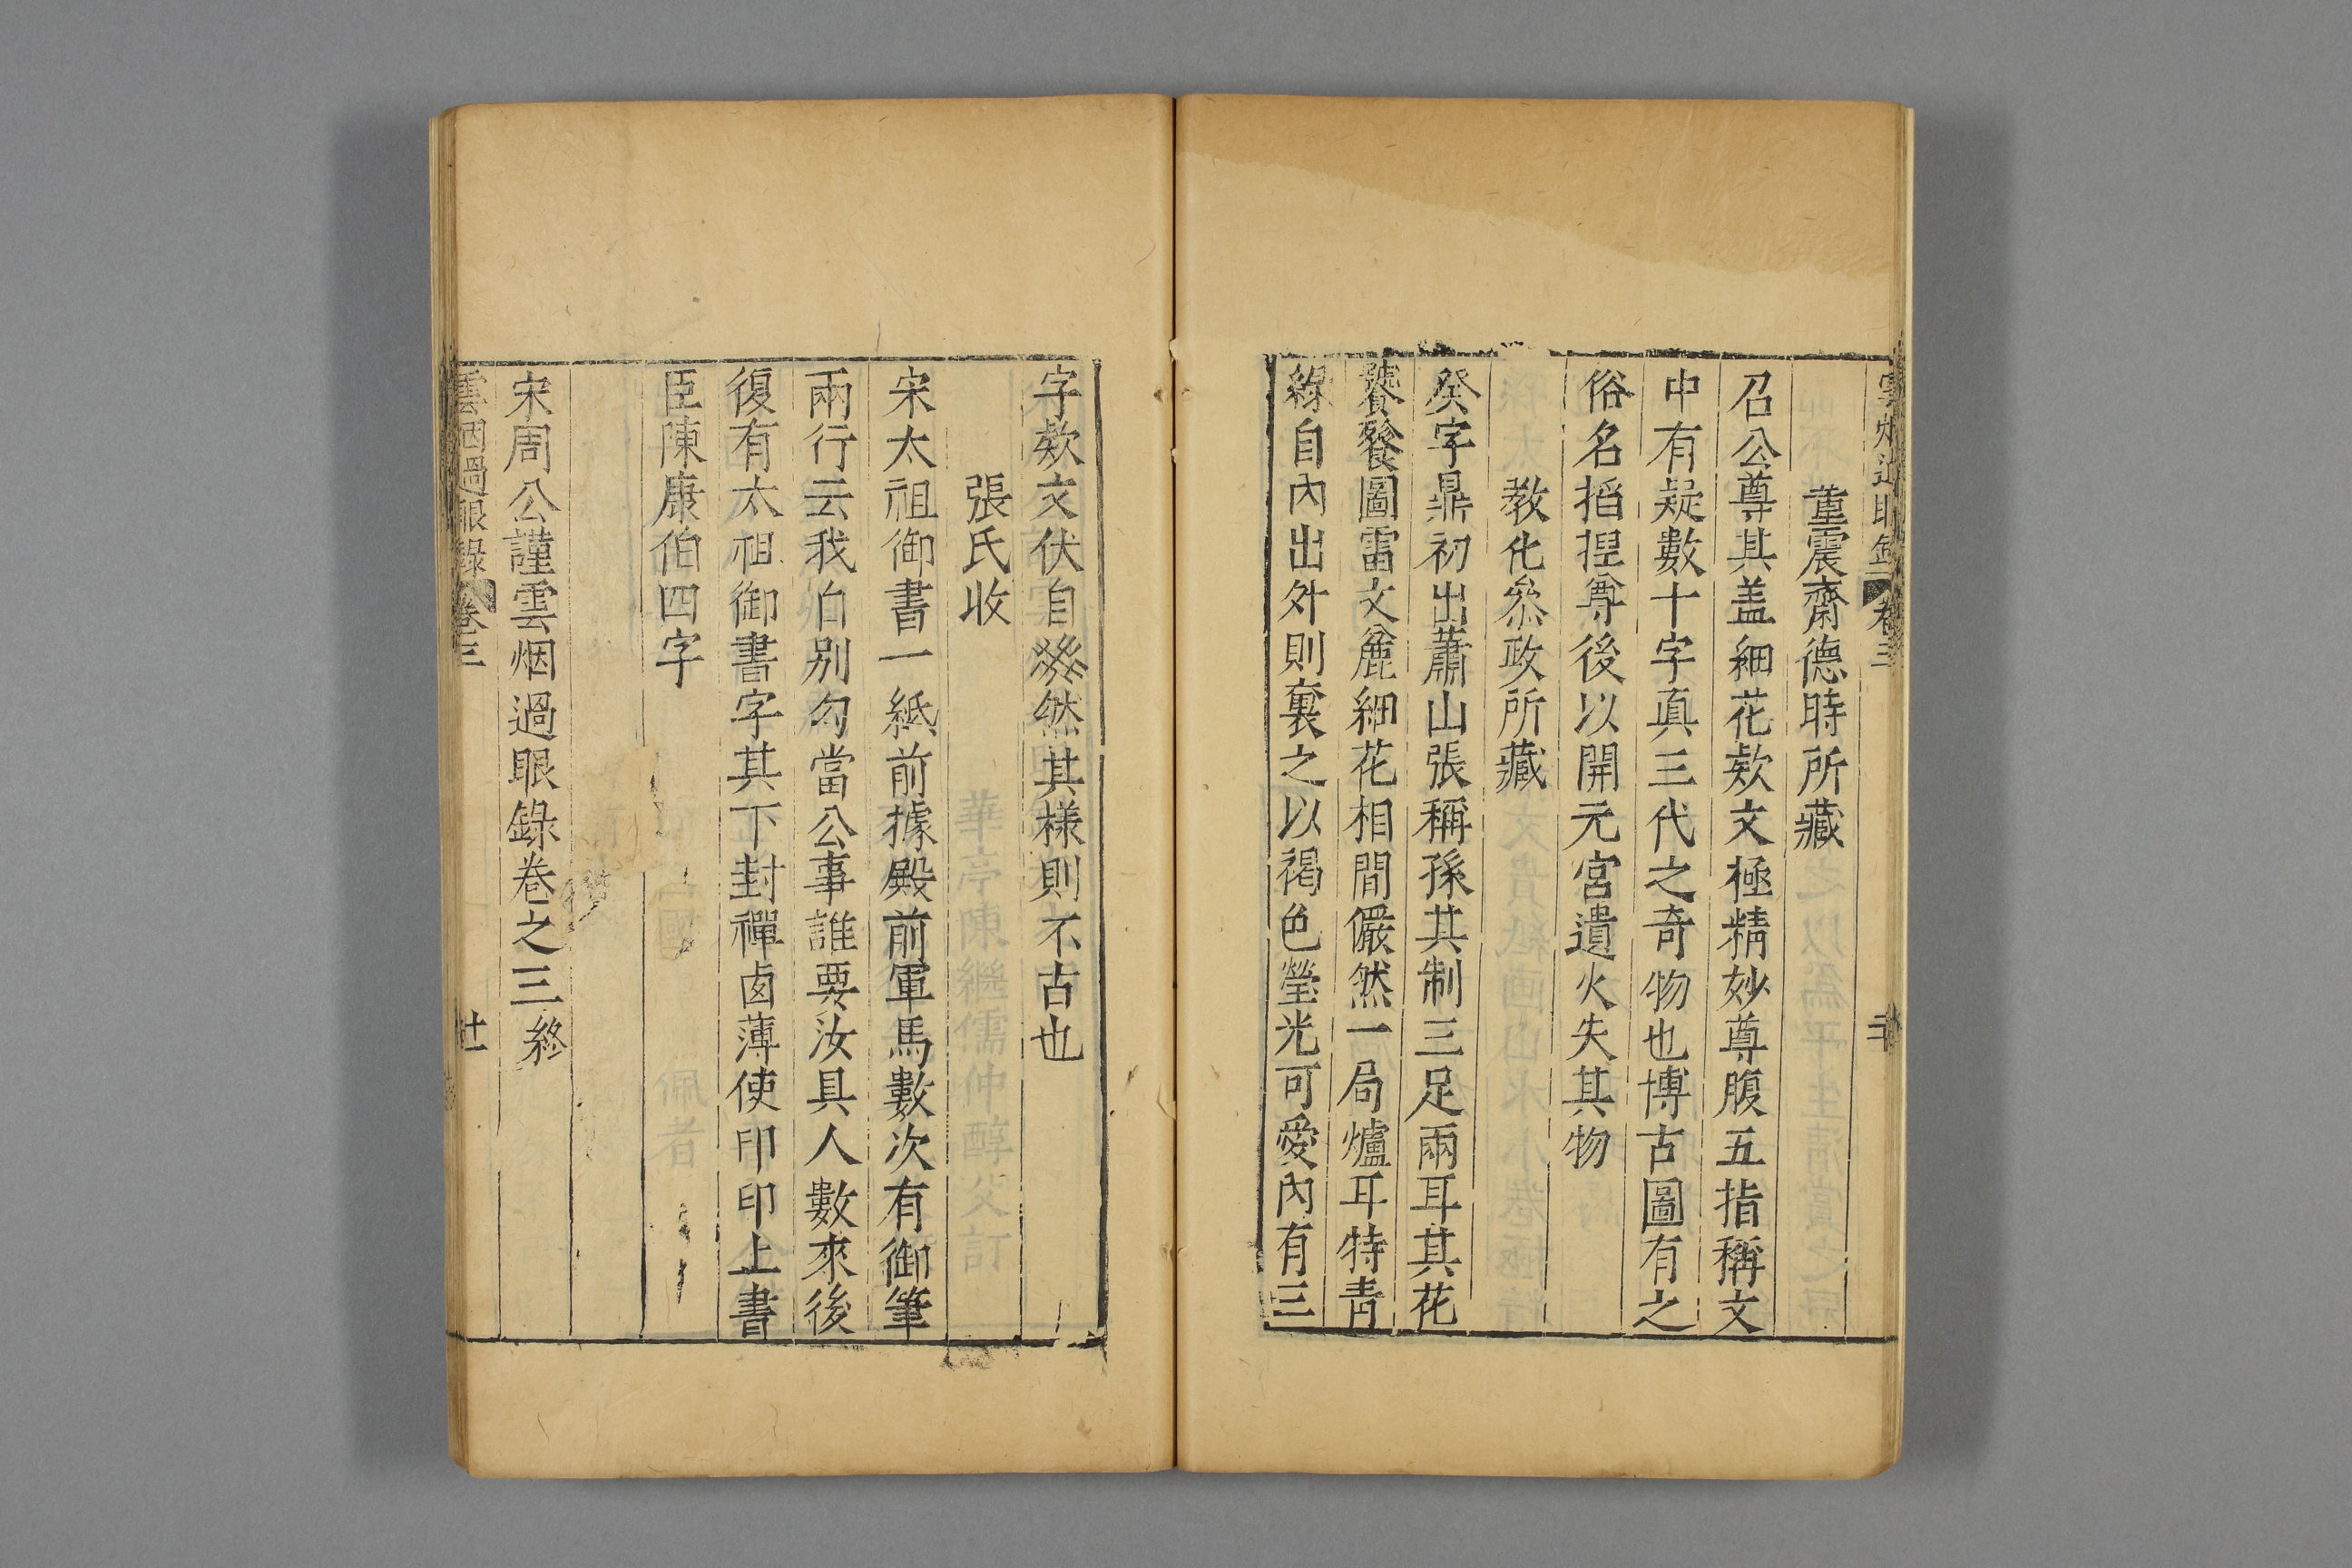 雲烟過眼錄 卷三 二十
董震齋德時所藏
召公尊其盖細花欵文極精妙尊腹五指稱文
中有疑數十字真三代之奇物也博古圖有之
俗名搯捏尊後以開元宮遺火失其物
教化叅政所藏
癸字鼎初出蕭山張稱孫其制三足兩耳其花
饕餮圖雷文麄細花相間儼然一局爐耳特青
綠自內出外則裏之以褐色瑩光可愛內有三
字欵文伏自然其樣則不古也
張氏收
宋太祖御書一紙前據殿前軍馬數次有御筆
兩行云我自别勾當公事誰要汝具人數來後
復有太祖御書字其下封禪鹵薄使印印上書
臣陳康伯四字
宋周公謹雲烟過眼錄卷之三終
雲烟過眼錄 卷三 廿一